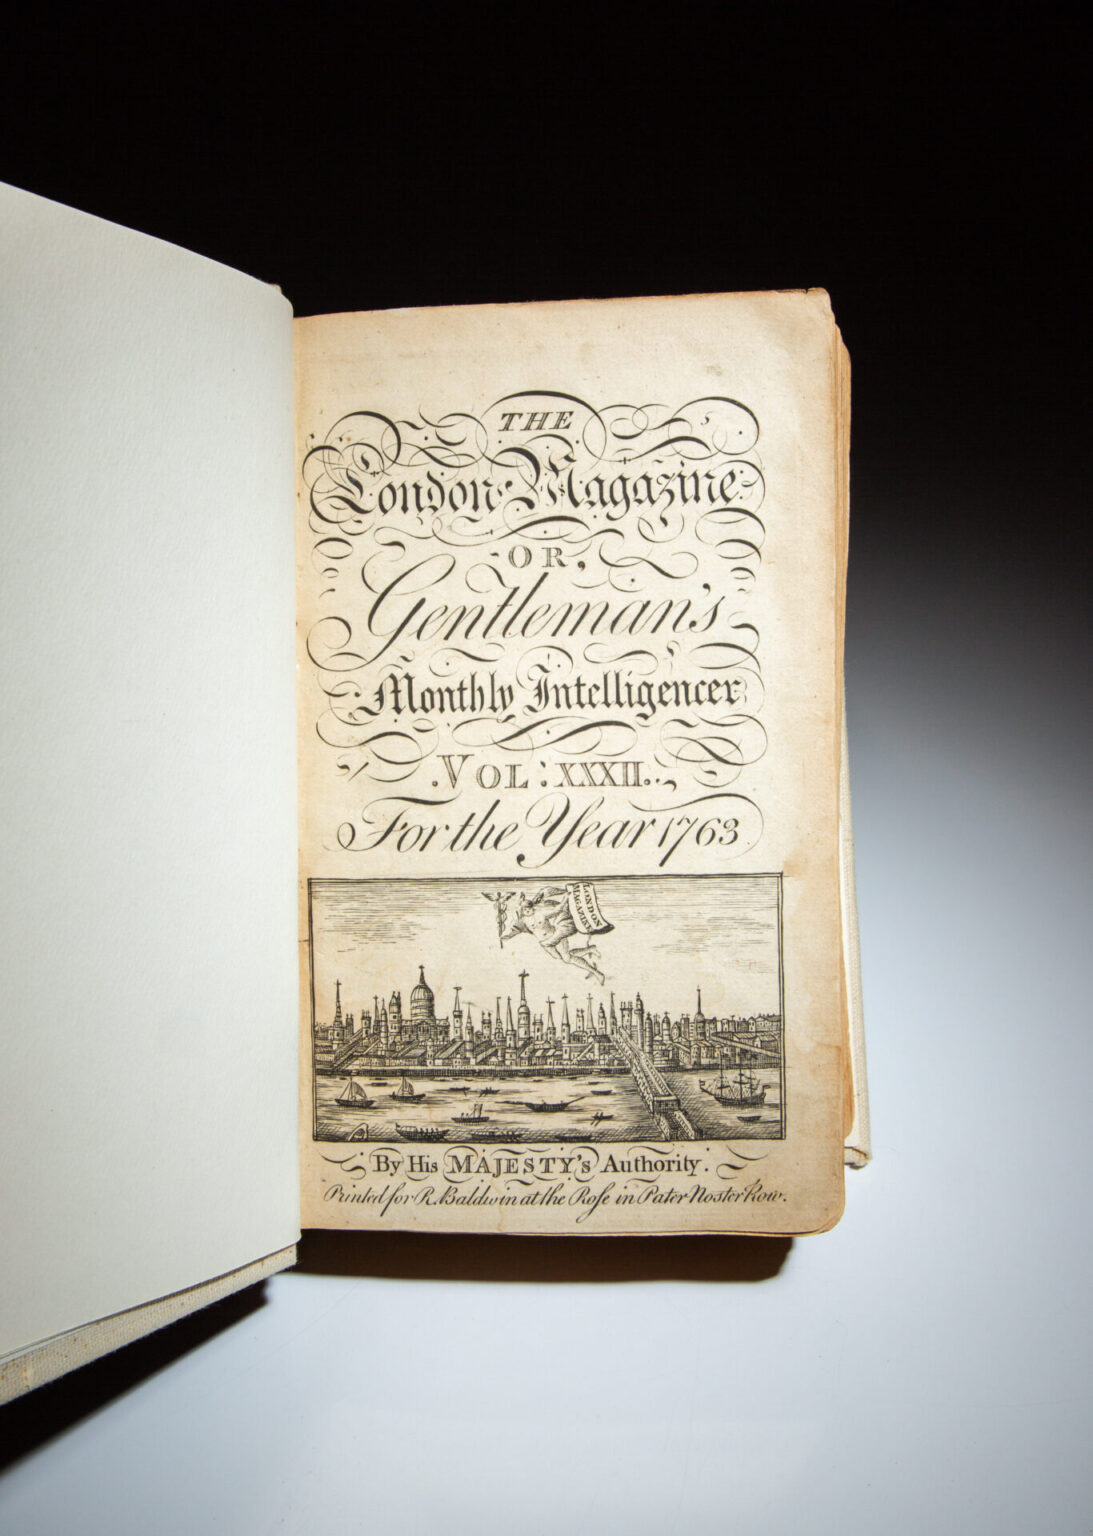 THE
London Magazine
OR,
Gentleman's
Monthly Intelligencer
VOL: XXXII.
For the Year 1763.
LONDON
MAGAZINE
By His MAJESTY's Authority.
Printed for R. Baldwin at the Roſe in Pater Noster Row.